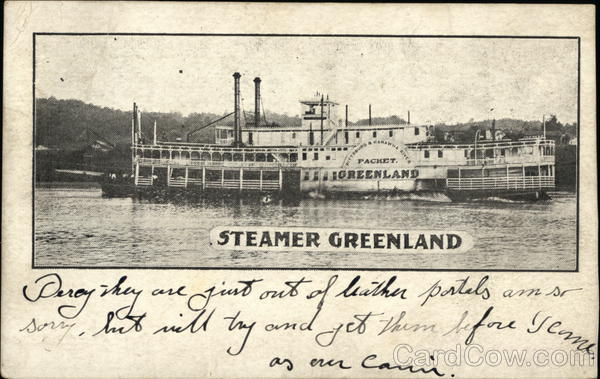 PITTSBURG & KANAWHA RIVER
PACKET.
GREENLAND
STEAMER GREENLAND
Percy - they are just out of leather postels am so
sorry, but will try and get them before I come
as our
CardCow.com